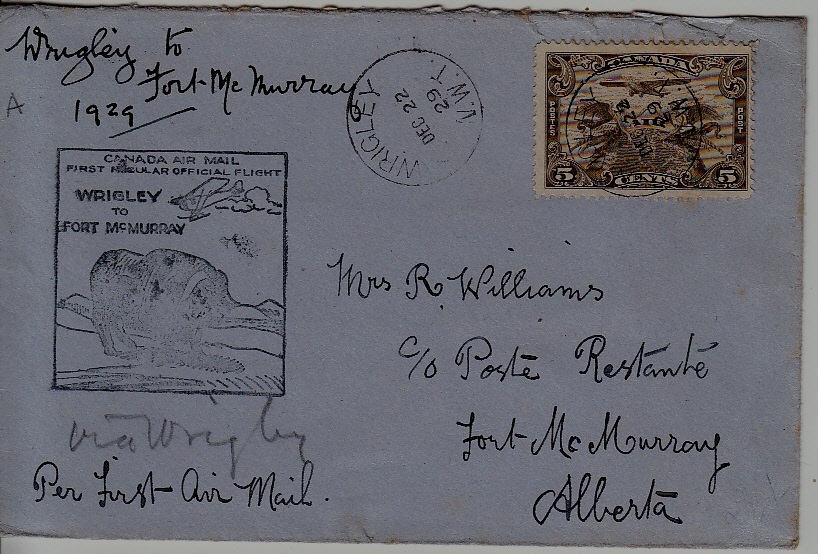 Wrigley to
Fort Mc Murray
1929
A
WRIGLEY
DEC 22
29
N.W.T.
CANADA
POSTES
POST
5
CENTS
5
CANADA AIR MAIL
FIRST REGULAR OFFICIAL FLIGHT
WRIGLEY
TO
FORT McMURRAY
Mrs R. Williams
c/o Poste Restanté
Fort Mc Murray
Alberta
via Wrigley
Per First Air Mail.